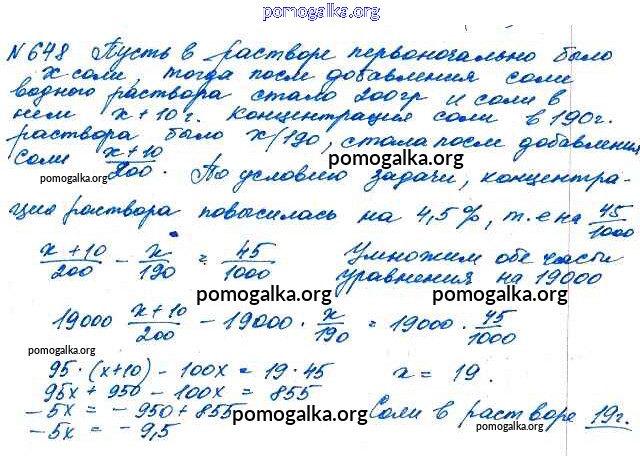 pomogalka.org
N 648 Пусть в растворе первоначально было
x соли, тогда после добавления соли
водного раствора стало 200гр и соли в
нем x + 10 г. Концентрация соли в 190г.
раствора было x/190, стала после добавления
соли (x+10)/200. По условию задачи, концентра-
pomogalka.org
pomogalka.org
ция раствора повысилась на 4,5%, т.е на 45/1000
(x+10)/200 - x/190 = 45/1000 Умножим обе части
уравнения на 19000
pomogalka.org
pomogalka.org
19000 (x+10)/200 - 19000 · x/190 = 19000 · 45/1000
pomogalka.org
95 · (x+10) - 100x = 19 · 45 x = 19.
95x + 950 - 100x = 855
-5x = -950 + 855 Соли в растворе 19г.
pomogalka.org
pomogalka.org
-5x = -9,5